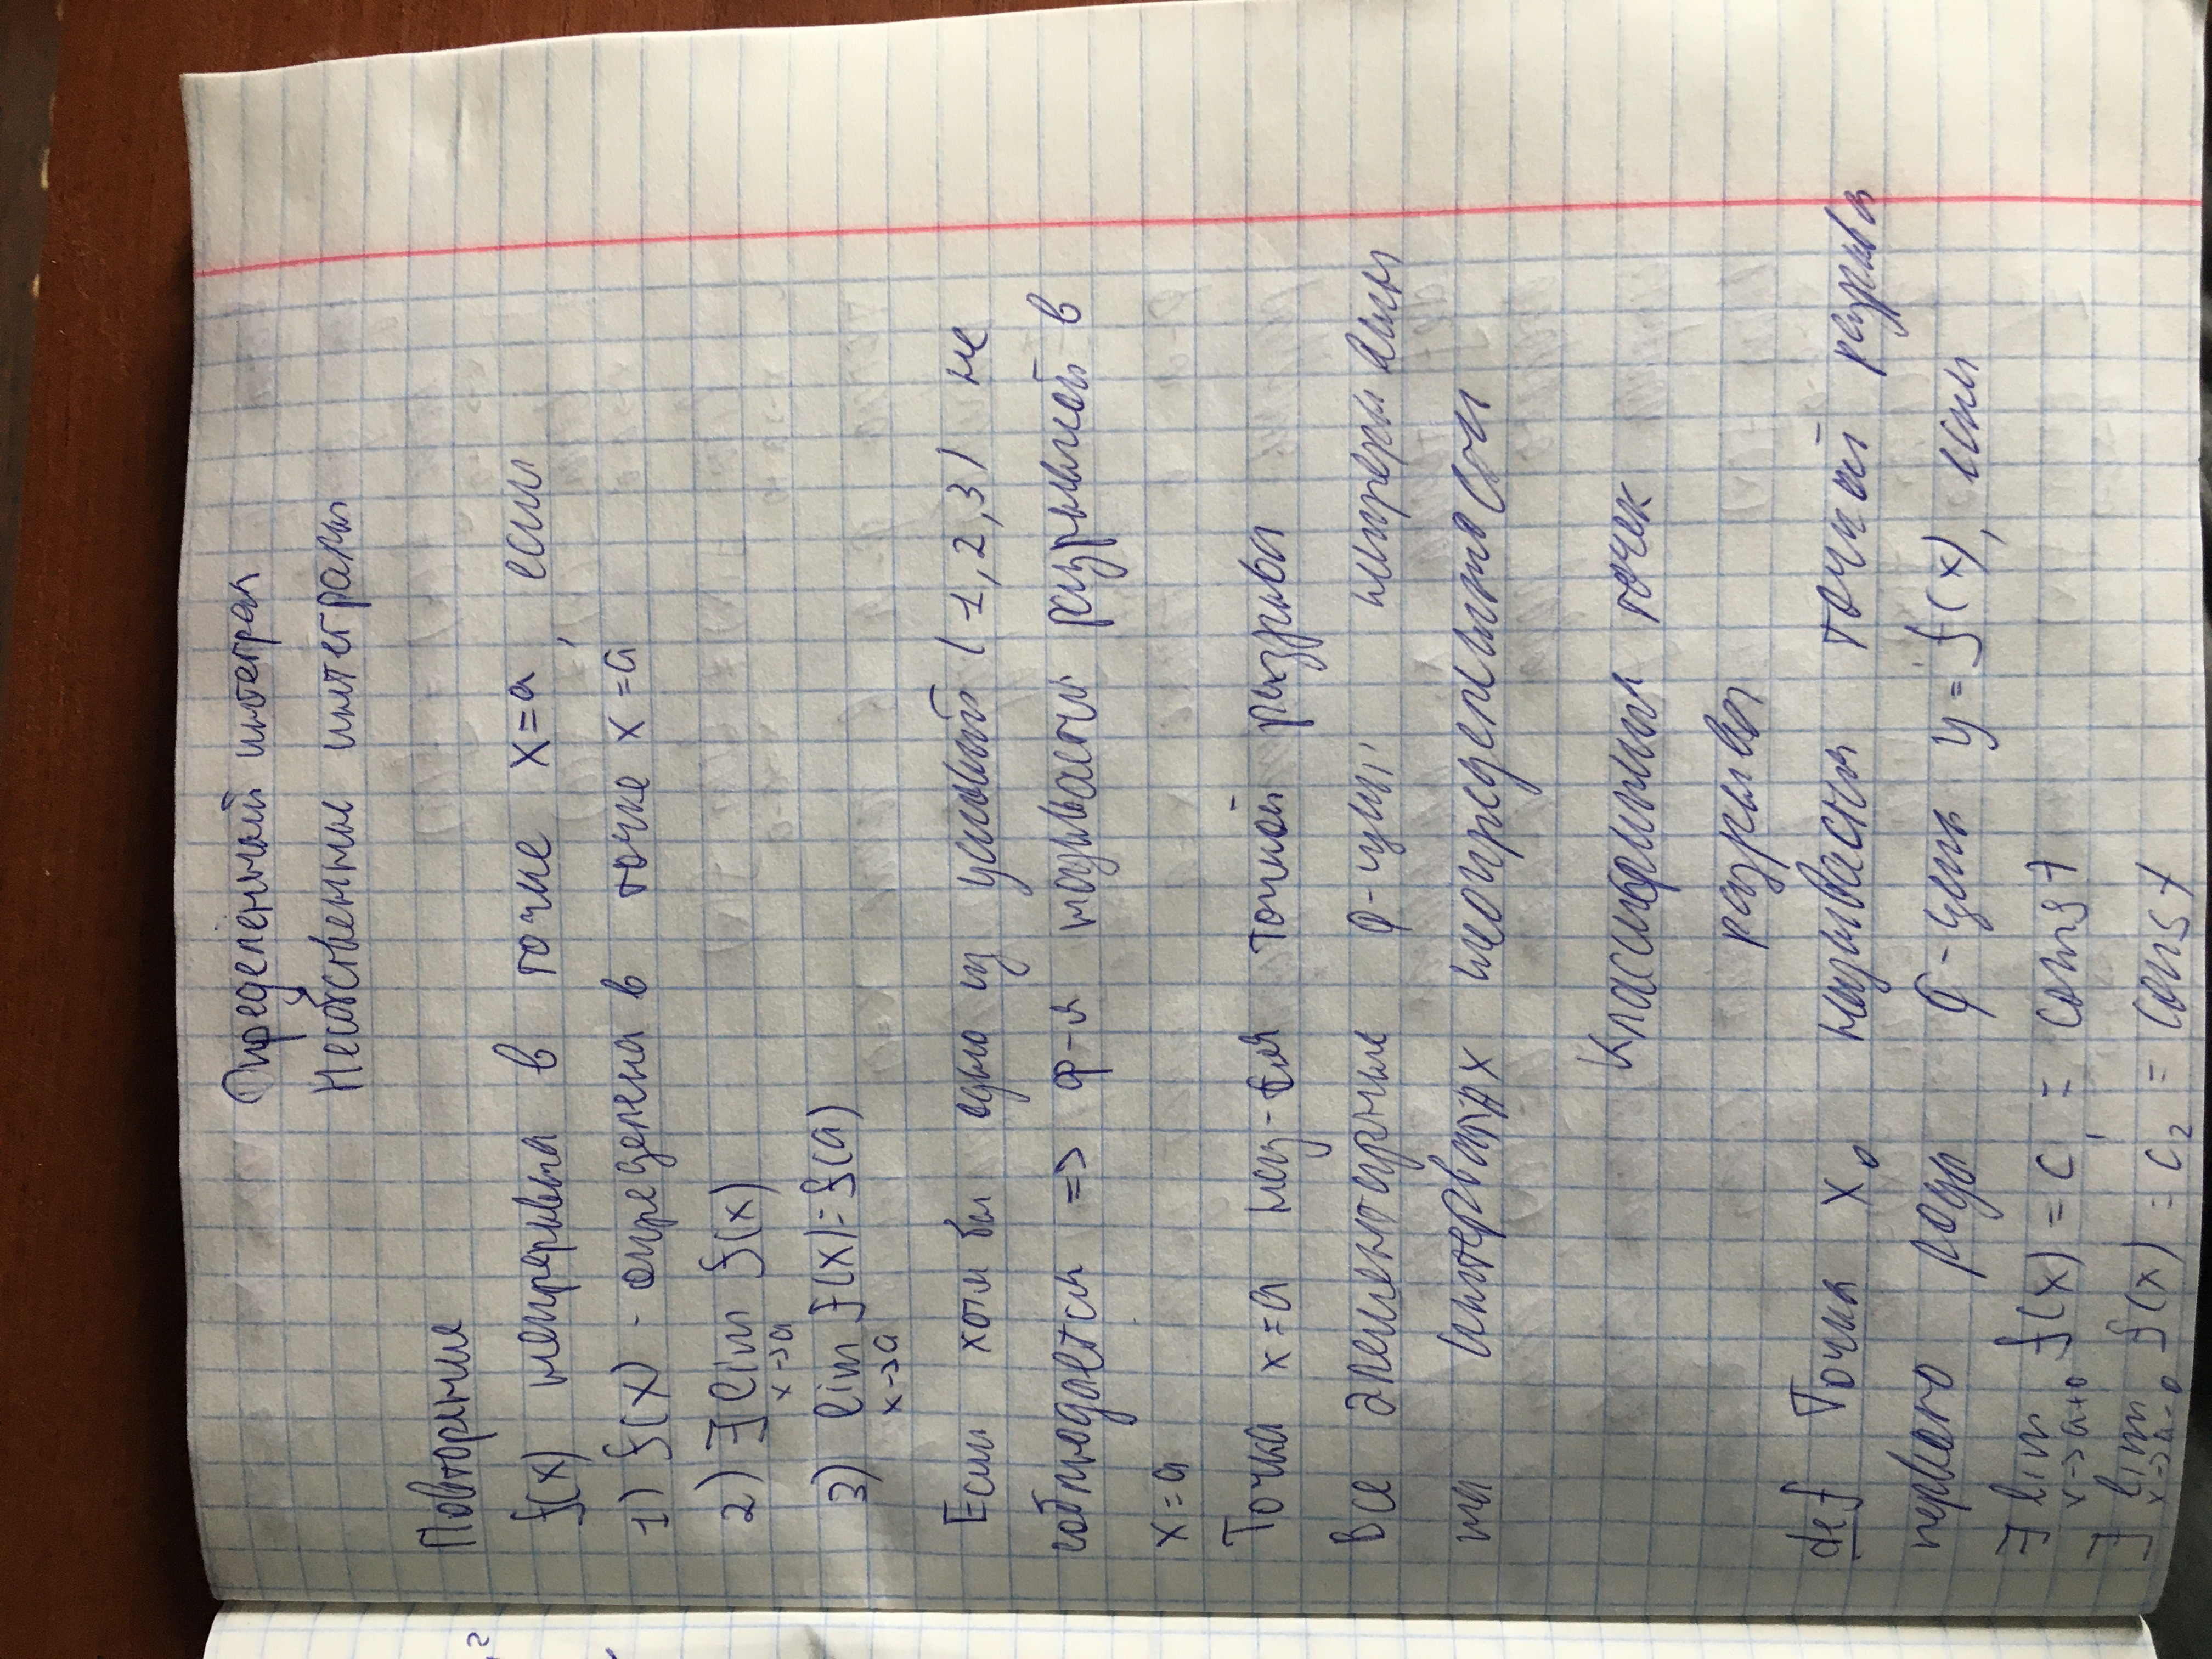 Определённый интеграл
Несобственные интегралы
Повторение
f(x) непрерывна в точке x=a, если
1) f(x) - определена в точке x=a
2) ∃ lim f(x)
x->a
3) lim f(x)=f(a)
x->a
Если хотя бы одно из условий (1,2,3) не
соблюдается => ф-я называется разрывной в
x=a
Точка x=a наз-ся точкой разрыва
Все элементарные ф-ции непрерывны
на интервалах неопределенности
Классификация точек
разрыва
def Точка x₀ называется точкой разрыва
первого рода ф-ции y=f(x), если
∃ lim f(x) = c₁ = const
x->a+0
∃ lim f(x) = c₂ = const
x->a-0